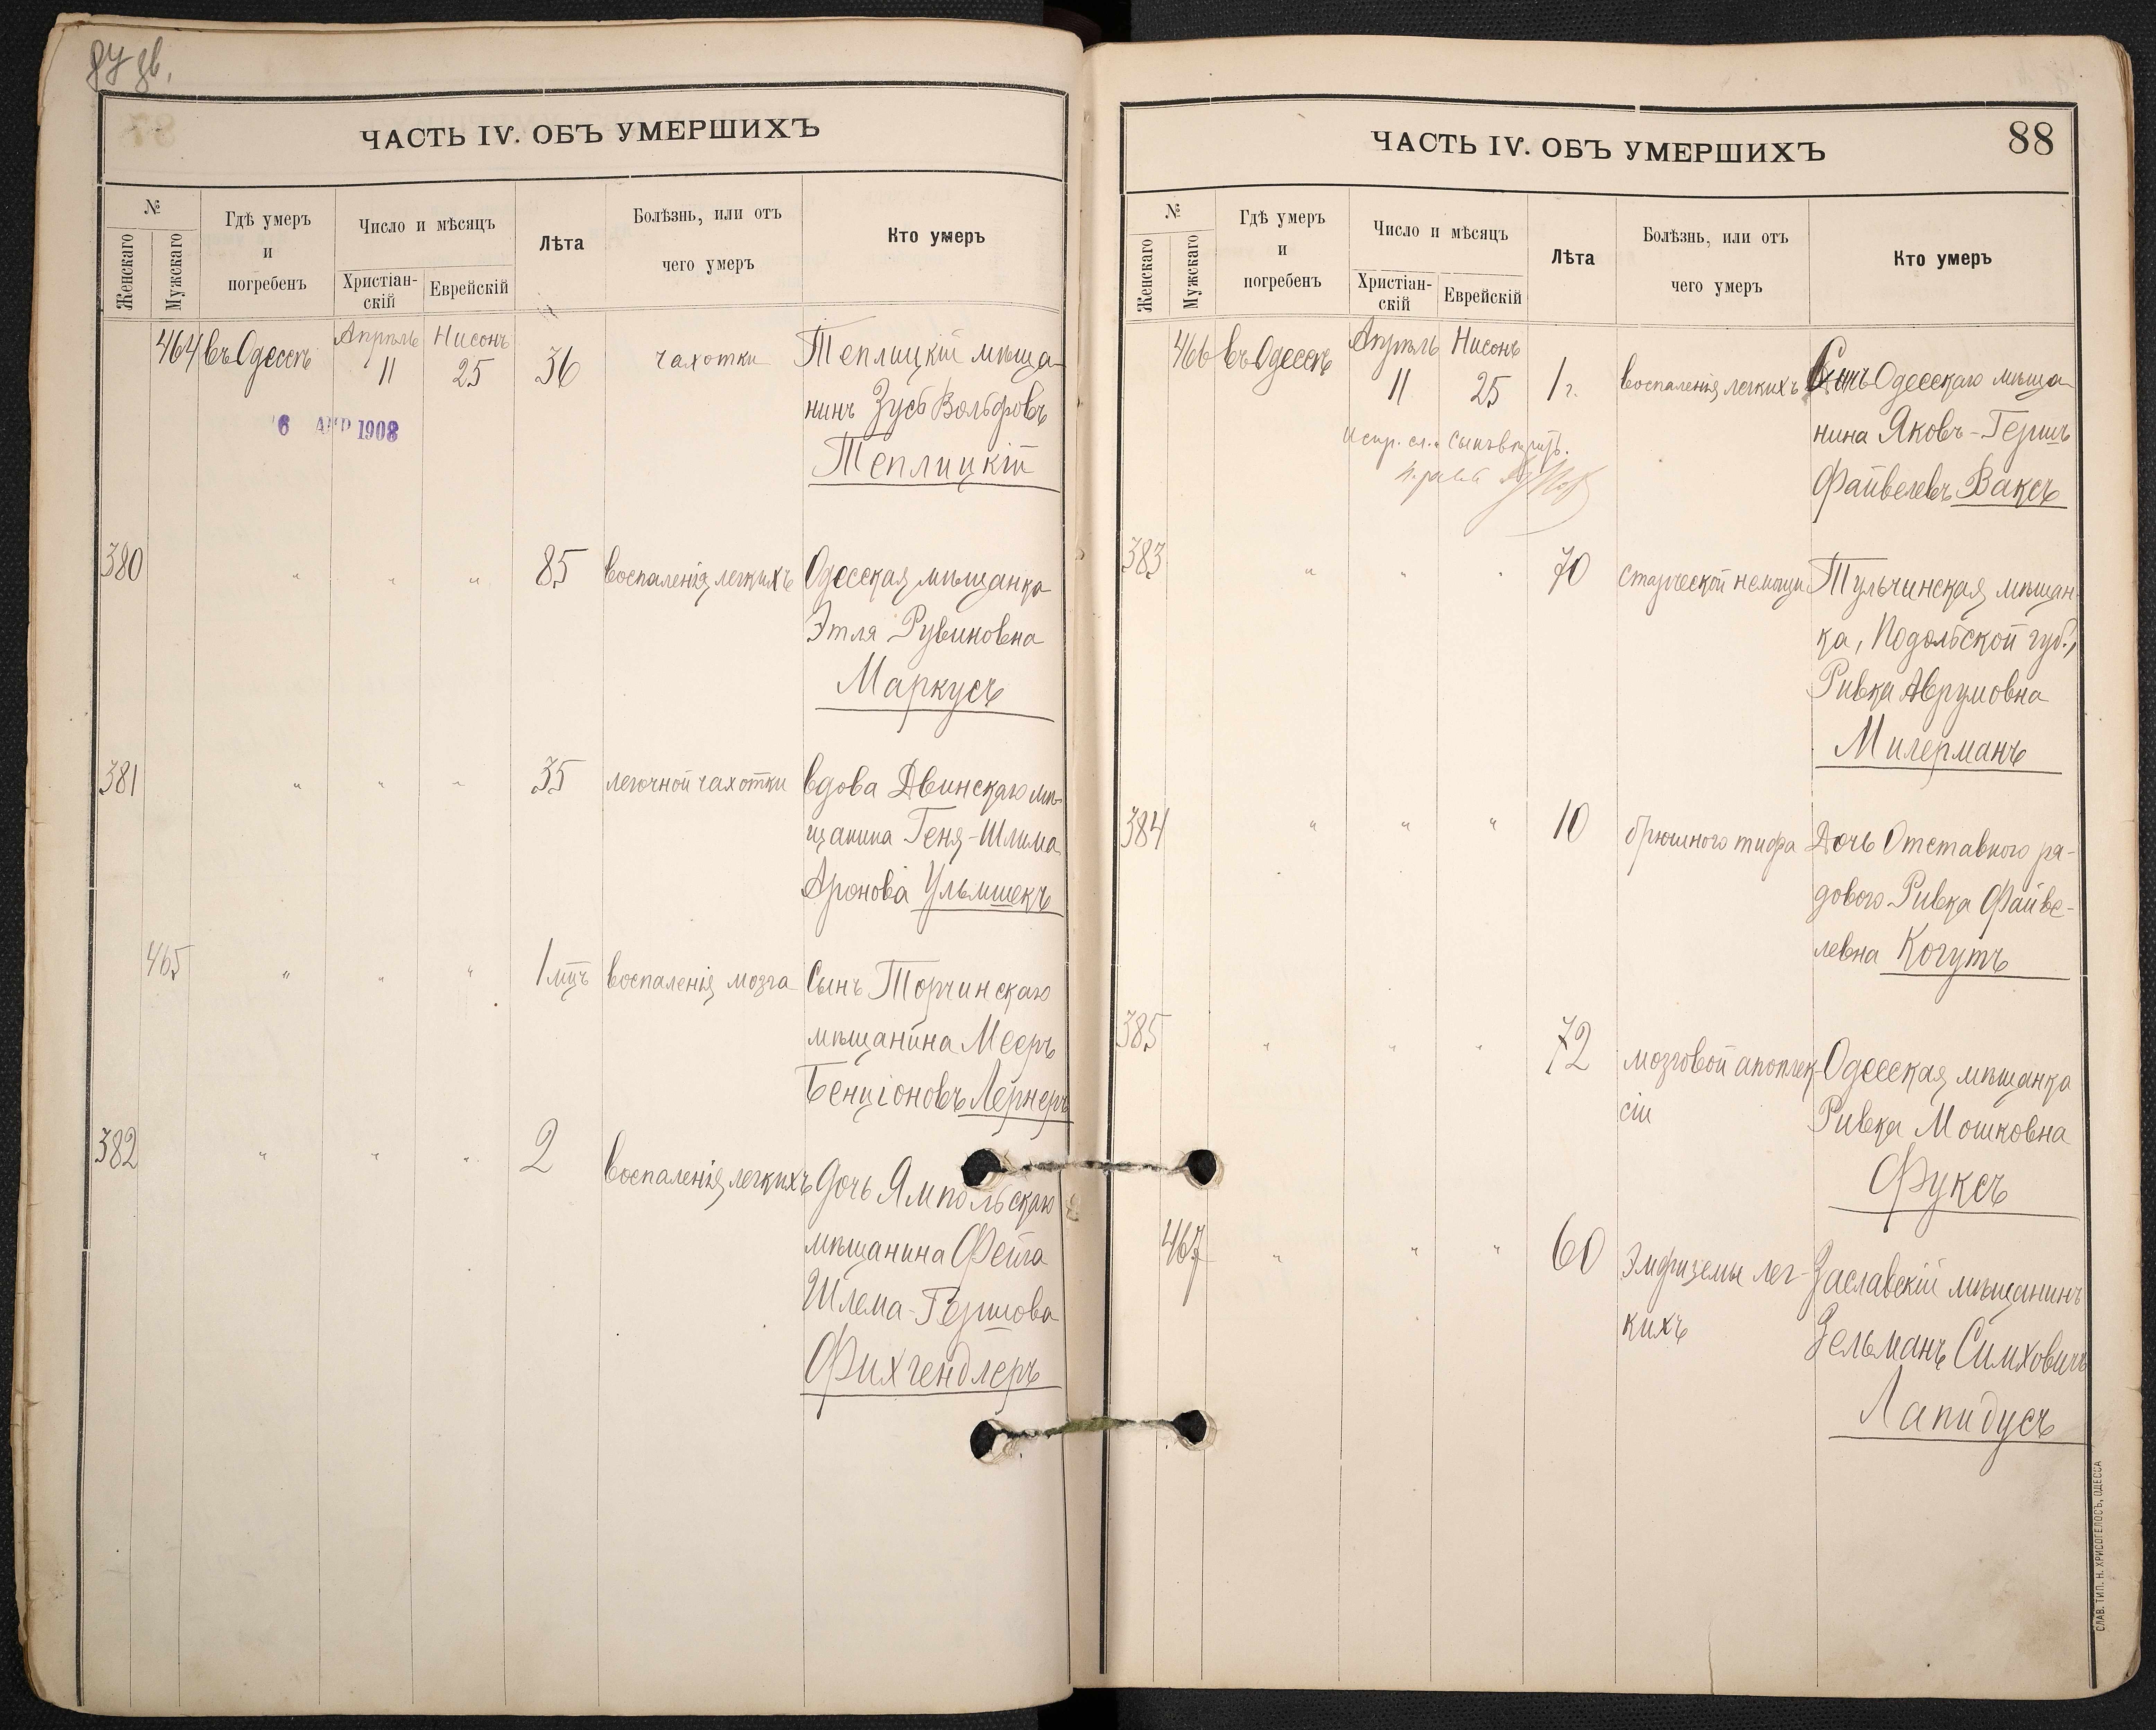 ЧАСТЬ IV. ОБЪ УМЕРШИХЪ
№
Женскаго
Мужскаго
Гдѣ умеръ
и
погребенъ
Число и мѣсяцъ
Христіан-
скій
Еврейскій
Лѣта
Болѣзнь, или отъ
чего умеръ
Кто умеръ
464 въ Одессѣ Апрѣль 11 Нисонъ 25 36 чахотки Теплицкій мѣща-
нинъ Зусь Вольфовъ
Теплицкій
6 АПР 1908
380 " " " 85 воспаленія легкихъ Одесская мѣщанка
Этля Рувиновна
Маркусъ
381 " " " 35 легочной чахотки вдова Двинскаго мѣ-
щанина Геня-Шлима
Аронова Ульмшекъ
465 " " " 1 мцъ воспаленія мозга Сынъ Торчинскаго
мѣщанина Мееръ
Бенціоновъ Лернеръ
382 " " " 2 воспаленія легкихъ Дочь Ямпольскаго
мѣщанина Фейга
Шлема-Гершова
Фихгендлеръ
ЧАСТЬ IV. ОБЪ УМЕРШИХЪ
88
№
Женскаго
Мужскаго
Гдѣ умеръ
и
погребенъ
Число и мѣсяцъ
Христіан-
скій
Еврейскій
Лѣта
Болѣзнь, или отъ
чего умеръ
Кто умеръ
466 въ Одессѣ Апрѣль 11 Нисонъ 25 1 г. воспаленія легкихъ Сынъ Одесскаго мѣща-
нина Яковъ-Гершъ
Файвелевъ Ваксъ
испр. сл. " сынъ
383 " " " 70 старческой немощи Тульчинская мѣщан-
ка, Подольской губ.,
Ривка Аврумовна
Милерманъ
384 " " " 10 брюшного тифа Дочь Отставного ря-
дового Ривка Файве-
левна Когутъ
385 " " " 72 мозговой апоплек- Одесская мѣщанка
сіи Ривка Мошковна
Фуксъ
467 " " " 60 Эмфиземы лег- Заславскій мѣщанинъ
кихъ Зельманъ Симховичъ
Лапидусъ
СЛАВ. ТИП. Н. ХРИСОГЕЛОСЪ, ОДЕССА